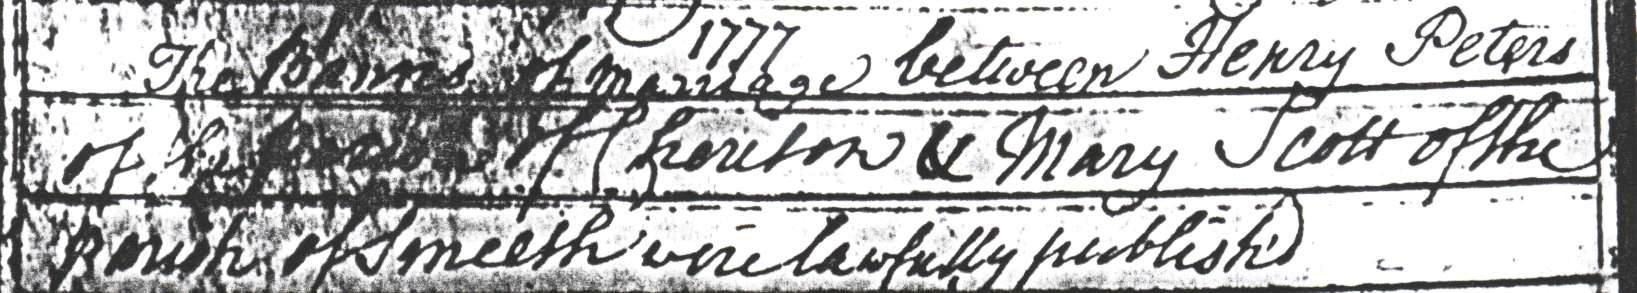 1777
The Banns of Marriage between Henry Peters
of the parish of Cheriton & Mary Scott of the
parish of Smeeth were lawfully publish'd